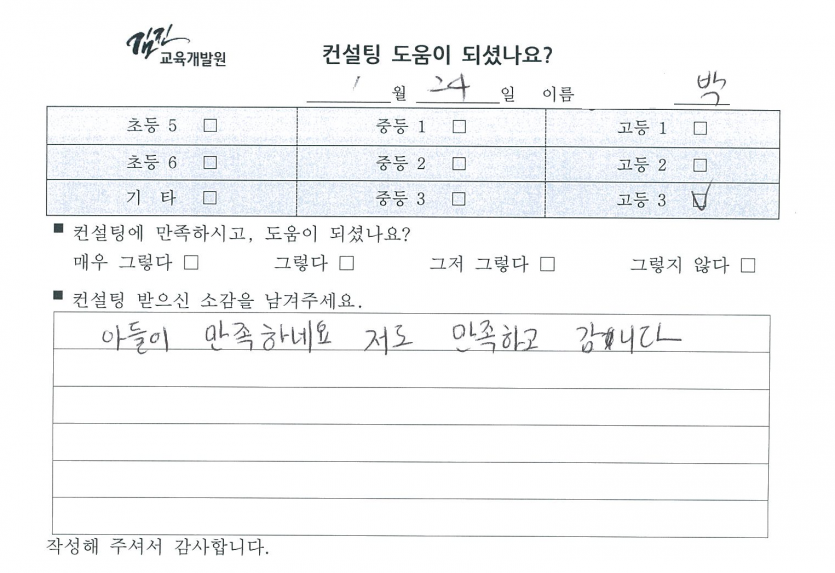 김진
교육개발원
컨설팅 도움이 되셨나요?
1 월 24 일 이름 박
초등 5 □ 중등 1 □ 고등 1 □
초등 6 □ 중등 2 □ 고등 2 □
기 타 □ 중등 3 □ 고등 3 ☑
■ 컨설팅에 만족하시고, 도움이 되셨나요?
매우 그렇다 □ 그렇다 □ 그저 그렇다 □ 그렇지 않다 □
■ 컨설팅 받으신 소감을 남겨주세요.
아들이 만족하네요 저도 만족하고 갑니다
작성해 주셔서 감사합니다.